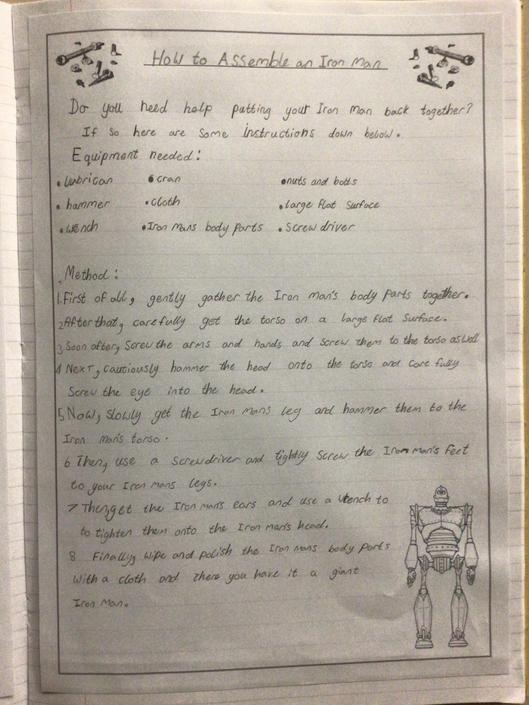 How to Assemble an Iron Man
Do you need help putting your Iron Man back together?
If so here are some instructions down below.
Equipment needed:
• lubrican • cran • nuts and bolts
• hammer • cloth • large flat surface
• wench • Iron mans body parts • Screwdriver
Method:
1. First of all, gently gather the Iron man's body parts together.
2 After that, carefully get the torso on a large flat surface.
3 Soon after, screw the arms and hands and screw them to the torso as well
4 Next, cautiously hammer the head onto the torso and carefully
screw the eye into the head.
5 Now, slowly get the Iron mans leg and hammer them to the
Iron man's torso.
6 Then, use a screwdriver and tightly screw the Iron man's feet
to your Iron mans legs.
7 Then get the Iron man's ears and use a wench to
to tighten them onto the Iron man's head.
8 Finally, wipe and polish the Iron mans body parts
with a cloth and there you have it a giant
Iron Man.